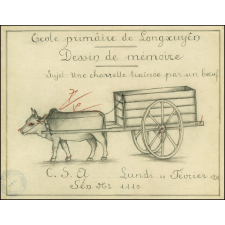 Ecole primaire de Longxuyên
Dessin de mémoire
Sujet: Une charrette traînée par un bœuf
C. S. A Lundi 11 Février